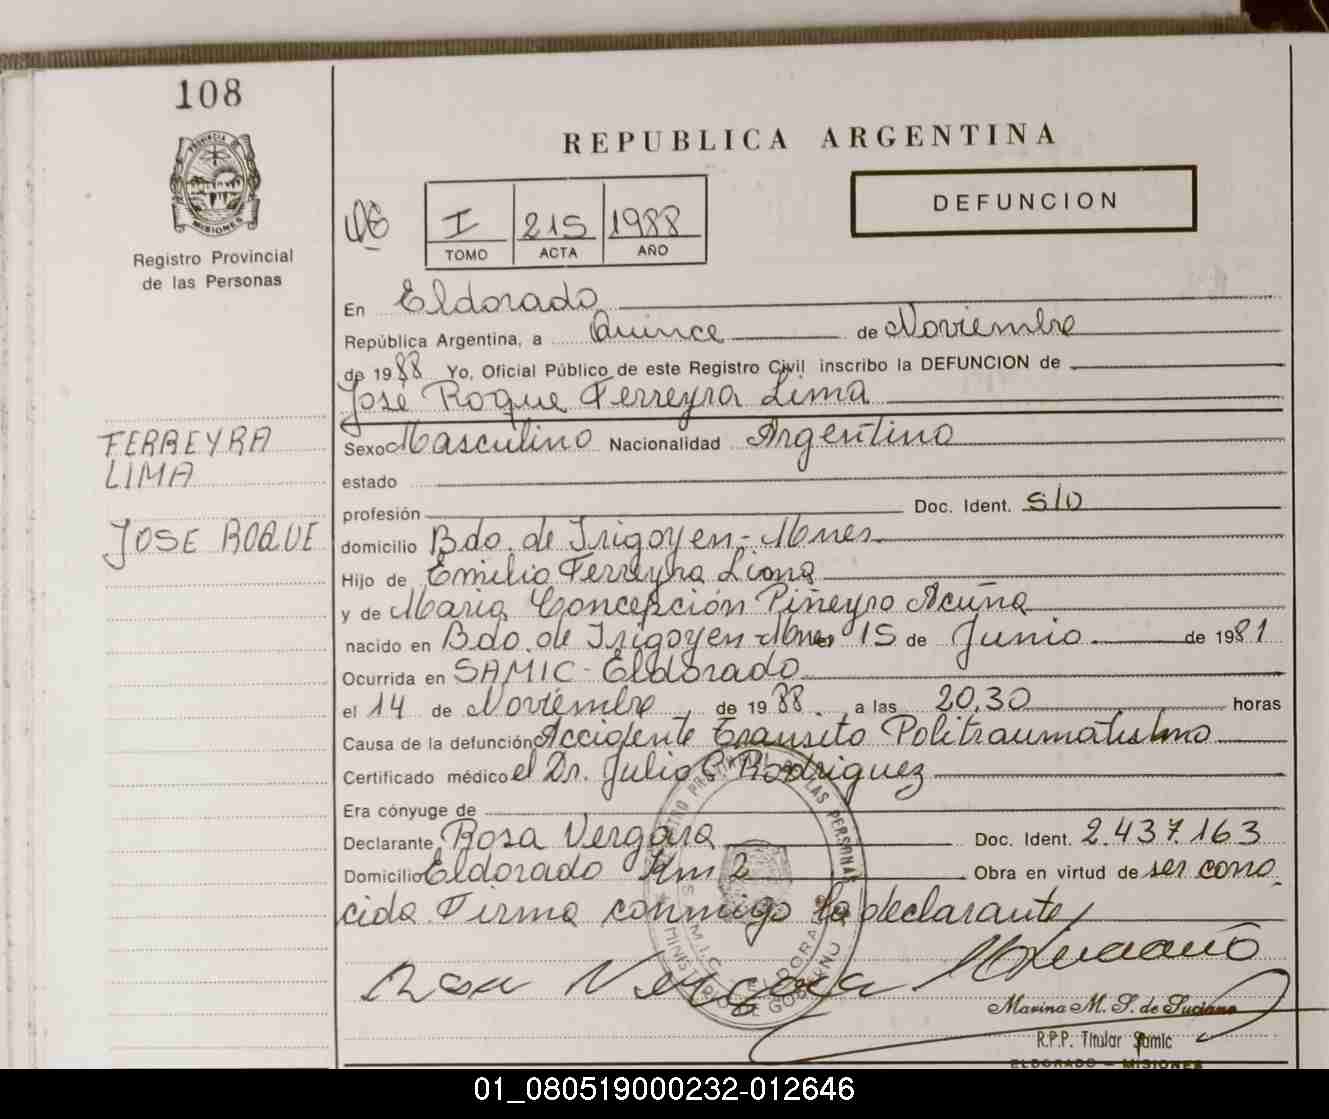 108
PROVINCIA DE
MISIONES
Registro Provincial
de las Personas
FERREYRA
LIMA
JOSE ROQUE
REPUBLICA ARGENTINA
DEFUNCION
I 215 1988
TOMO ACTA AÑO
En Eldorado
República Argentina, a Quince de Noviembre
de 1988 Yo, Oficial Público de este Registro Civil inscribo la DEFUNCION de
José Roque Ferreyra Lima
Sexo Masculino Nacionalidad Argentino
estado
profesión Doc. Ident. S/D
domicilio Bdo. de Irigoyen - Mnes
Hijo de Emilio Ferreyra Lima
y de Maria Concepción Piñeyro Acuña
nacido en Bdo. de Irigoyen Mnes el 15 de Junio de 1981
Ocurrida en SAMIC - Eldorado
el 14 de Noviembre de 1988 a las 20,30 horas
Causa de la defunción Accidente Transito Politraumatismo
Certificado médico el Dr. Julio C. Rodriguez
Era cónyuge de
Declarante Rosa Vergara Doc. Ident. 2.437.163
Domicilio Eldorado Km 2 Obra en virtud de ser cono
cida Firma conmigo la declarante
Rosa Vergara
Marina M. S. de Luciano
R.P.P. Titular Samic
ELDORADO - MISIONES
01_080519000232-012646